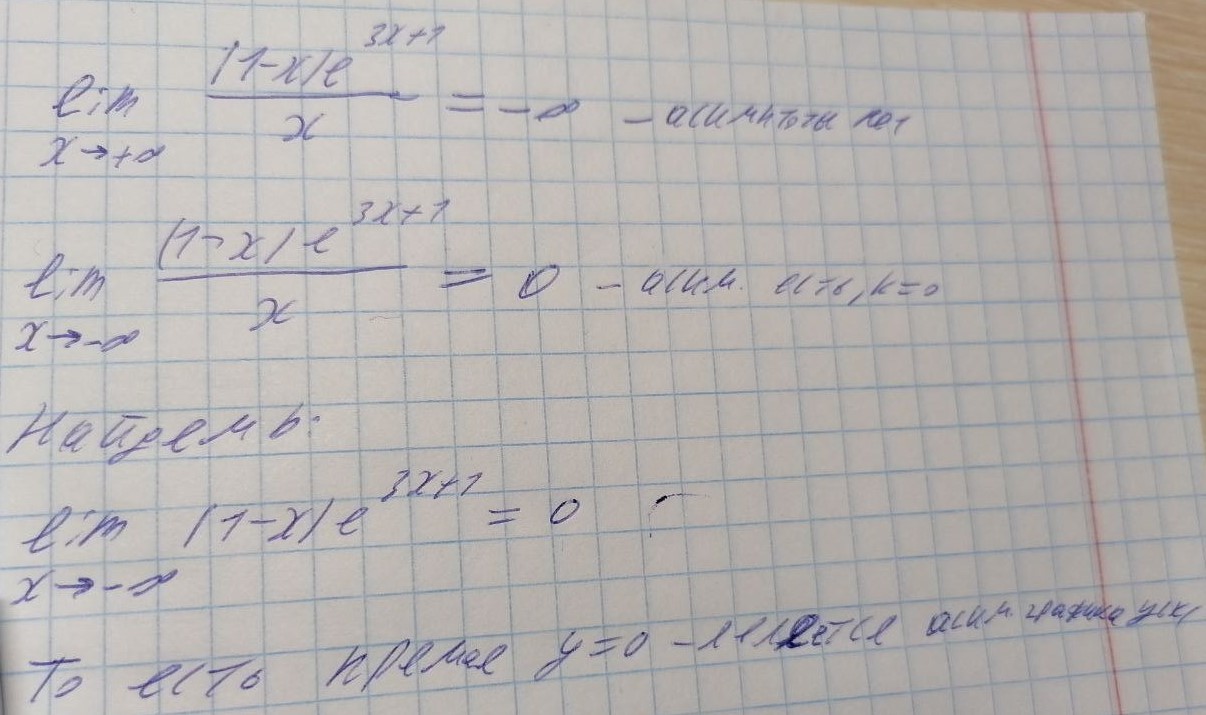 lim x→+∞ (1-x)e^{3x+1} / x = -∞ - асимптоты нет
lim x→-∞ (1-x)e^{3x+1} / x = 0 - асим. есть, k=0
Найдем b:
lim x→-∞ (1-x)e^{3x+1} = 0
То есть прямая y=0 - является асим графика y(x)